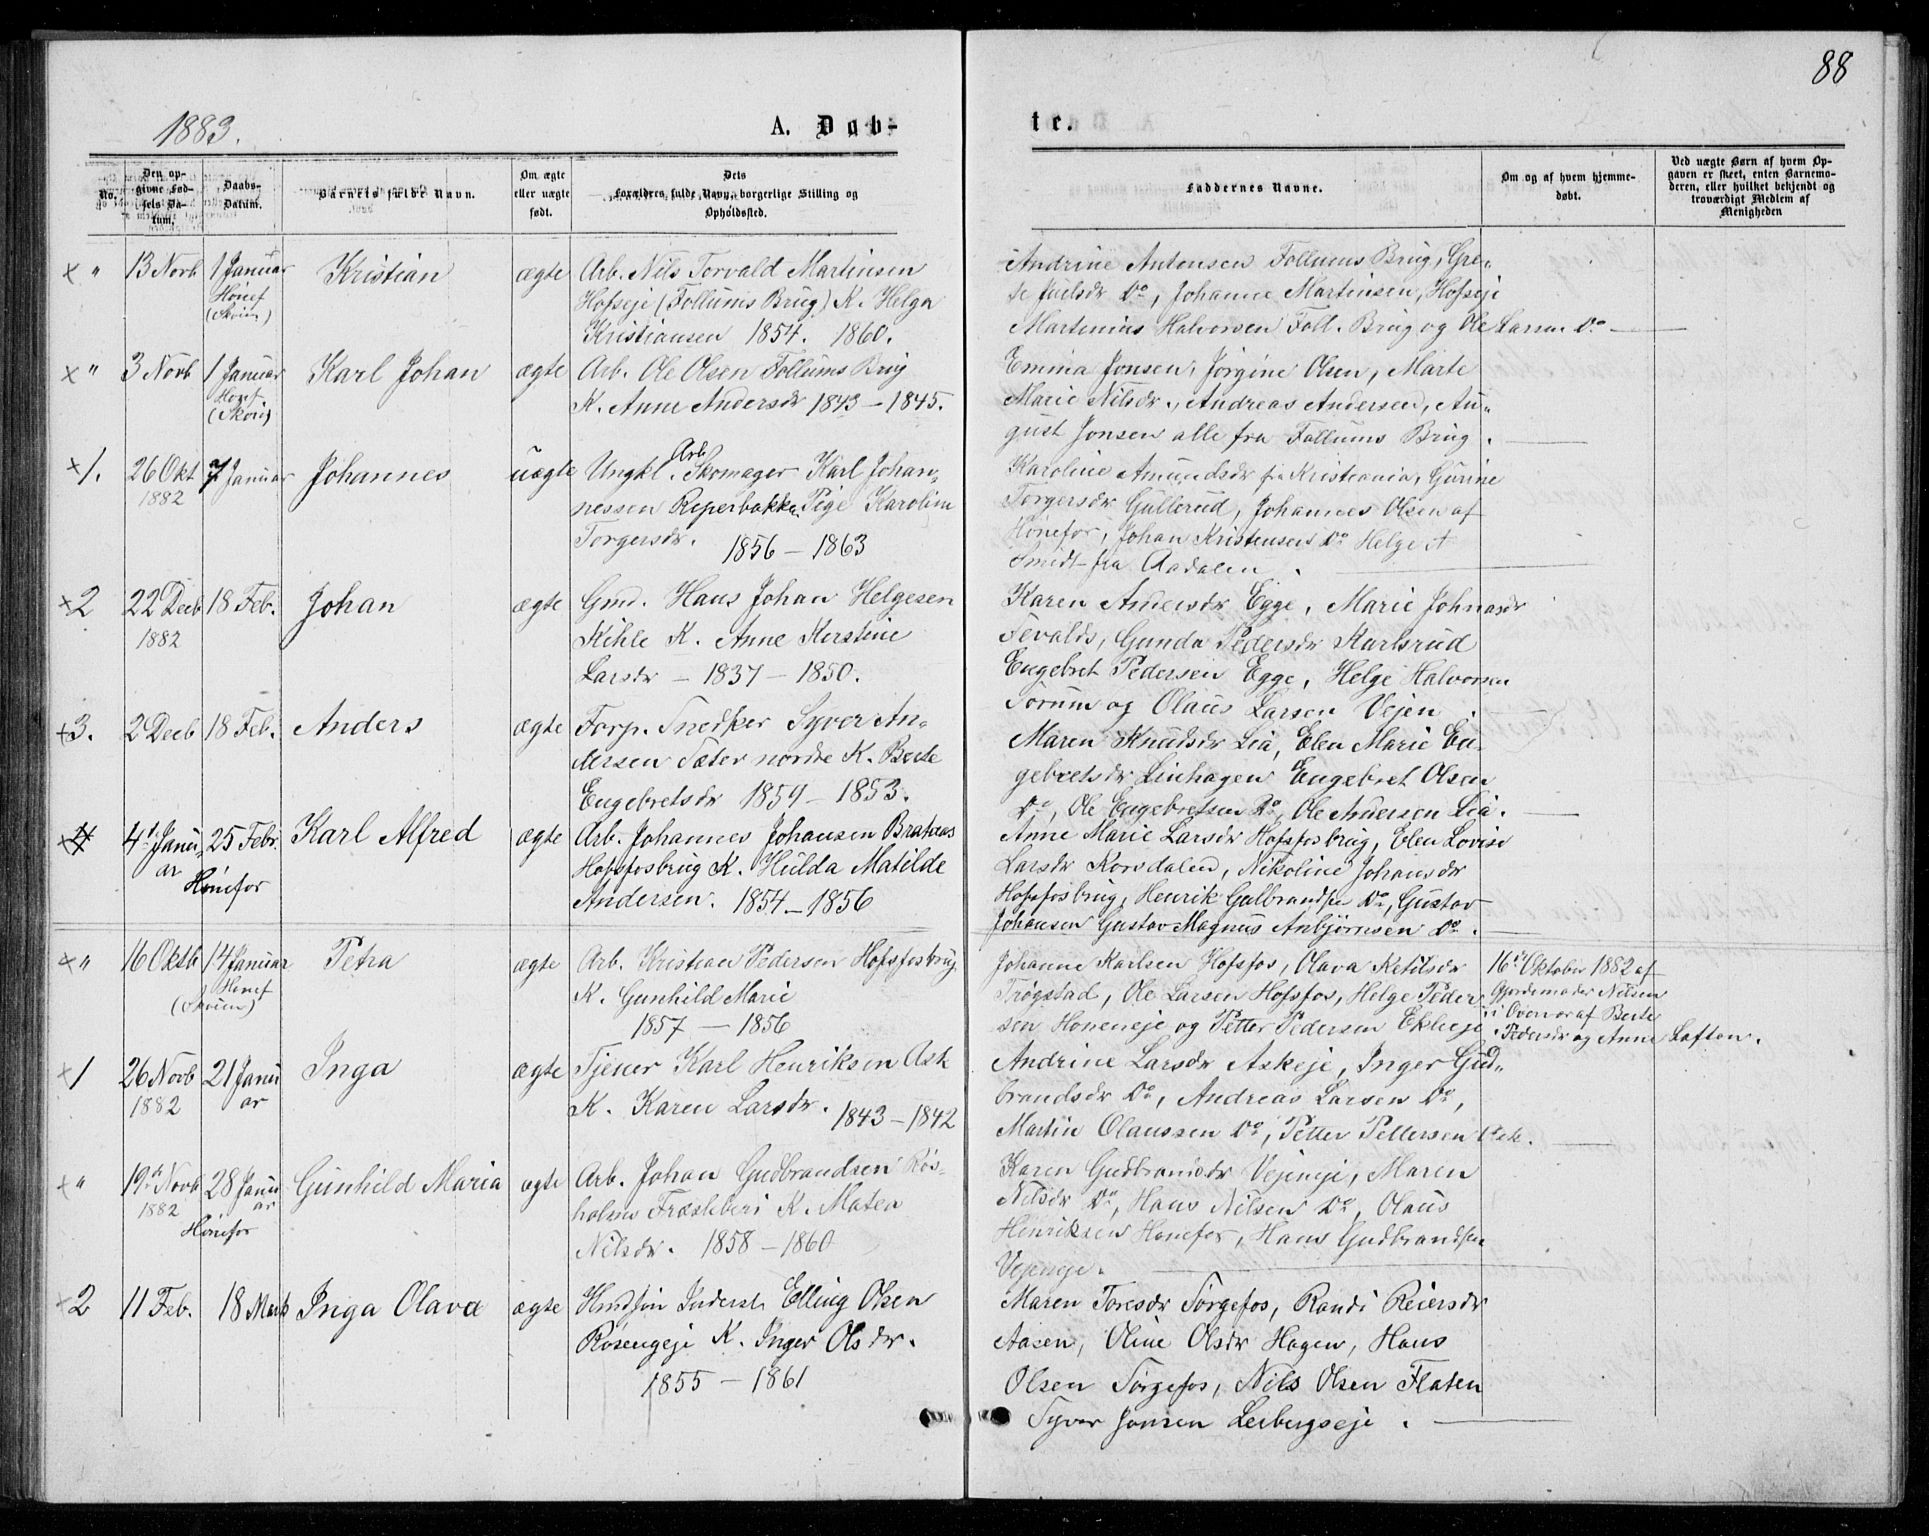 88
1883.
A. Døb-
te.
No.
Den op-
givne Fød-
sels Da-
tum.
Daabs-
Datum.
Barnets fulde Navn.
Om ægte
eller uægte
født.
Dets
Forældres fulde Navn, borgerlige Stilling og
Opholdssted.
Faddernes Navne.
Om og af hvem hjemme-
døbt.
Ved uægte Børn af hvem Op-
gaven er skeet, enten Barnemo-
deren, eller hvilket bekjendt og
troværdigt Medlem af
Menigheden
x " 13 Novb 1 Januar Kristian ægte Arb. Nils Torvald Martinsen
Hønef
(Skoien)
Hofseje (Follums Brug) K. Helga
Kristiansen 1854. 1860.
Andrine Antonsen Follums Brug, Gre-
te Juelsdr Do, Johanne Martinsen, Hofseje
Martinius Halvorsen Foll. Brug og Ole Larsen Do
x " 3 Novb 1 Januar Karl Johan ægte Arb. Ole Olsen Follums Brug
Honef
(Skoie)
K. Anne Andersdr 1843 - 1845.
Emma Jonsen, Jørgine Olsen, Marte
Marie Nilsdr., Andreas Andersen, Au-
gust Jonsen alle fra Follums Brug.
x 1. 26 Okt 7 Januar Johannes uægte Ungkl. Skomager Karl Johan-
Arb
1882
nessen Reperbakken Pige Karoline
Torgersdr. 1856 - 1863
Karoline Amundsdr fra Kristiania, Gurine
Torgersdr Gullerud, Johannes Olsen af
Hønefos, Johan Kristensen Do Helge A
Smidt fra Aadalen.
x 2 22 Decb 18 Feb. Johan ægte Gmd. Hans Johan Helgesen
1882
Kihle K. Anne Kerstine
Larsdr - 1837 - 1850.
Karen Andersdr Egge, Marie Johnasdr
Tevalds, Gunda Pedersdr Karlsrud
Engebret Pedersen Egge, Helge Halvorsen
Sørum og Olaus Larsen Vejen.
x 3. 2 Decb 18 Feb. Anders ægte Forp. Snedker Syver An-
dersen Sæter nordre K. Berte
Engebretsdr 1859 - 1853.
Maren Knudsdr Lia, Elen Marie En-
gebretsdr Linhagen Engebret Olsen
Do, Ole Engebretsen Do, Ole Andersen Lia.
x 4 4d Janu- 25 Febr. Karl Alfred ægte Arb. Johannes Johansen Brataas
ar Hønefos
Hofsfosbrug K. Hulda Matilde
Andersen. 1854 - 1856
Anne Marie Larsdr Hofsfosbrug, Elen Lovise
Larsdr Korsdalen, Nikoline Johansdr
Hofsfosbrug, Henrik Gulbrandsen Do, Gustav
Johansen Gustav Magnus Anbjørnsen Do.
x " 16 Oktb 14 Januar Petra ægte Arb. Kristian Pedersen Hofsfosbrug
Hønef
(Skoien)
K. Gunhild Marie
1857 - 1856
Johanne Karlsen Hofsfos, Olava Ketilsdr
Trøgstad, Ole Larsen Hofsfos, Helge Peder
sen Honeneje og Petter Pedersen Ekleeje
16de Oktober 1882 af
Gjordemoder Nilsen
i Overvær af Berte
Pedersdr og Anne Lafton.
x 1 26 Novb 21 Janu Inga ægte Tjener Karl Henriksen Ask
1882 ar
K. Karen Larsdr. 1843 - 1842
Andrine Larsdr Askeje, Inger Gud-
brandsdr Do, Andreas Larsen Do,
Martin Olaussen Do, Petter Pettersen Ask.
x " 19d Novb 28 Janu Gunhild Maria ægte Arb. Johan Gudbrandsen Røs-
1882 ar
Hønefos
holms Træsliberi K. Maten
Nilsdr. 1858 - 1860
Karen Gudbrandsdr Vejeneje, Maren
Nilsdr Do, Hans Nilsen Do, Olaus
Henriksen Hønefos, Hans Gudbrandsen
Vejeneje.
x 2 11 Feb. 18 Marts Inga Olava ægte Husfsin Inderst. Elling Olsen
Røsengeje K. Inger Olsdr.
1855 - 1861
Maren Toresdr Sørgefos, Randi Reiersdr
Aasen, Oline Olsdr Hagen, Hans
Olsen Sørgefos, Nils Olsen Flaten
Syver Jonsen Lerbergseje.